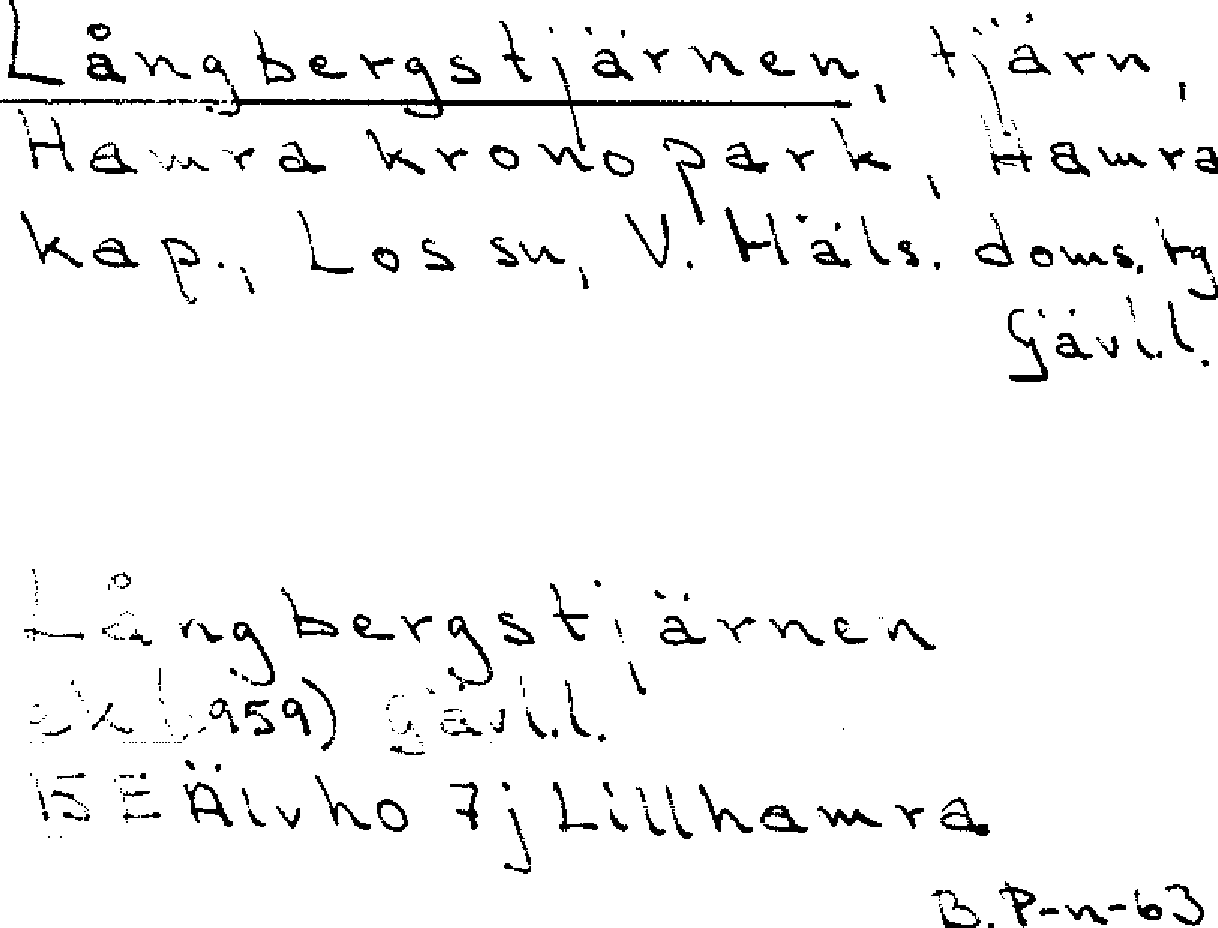 Långbergstjärnen, tjärn,
Hamra kronopark, Hamra
kap., Los sn, V. Häls. doms. tg
Gävl.l.
Långbergstjärnen
ek (1959) Gävl.l.
15E Älvho 7j Lillhamra
B. P-n-63